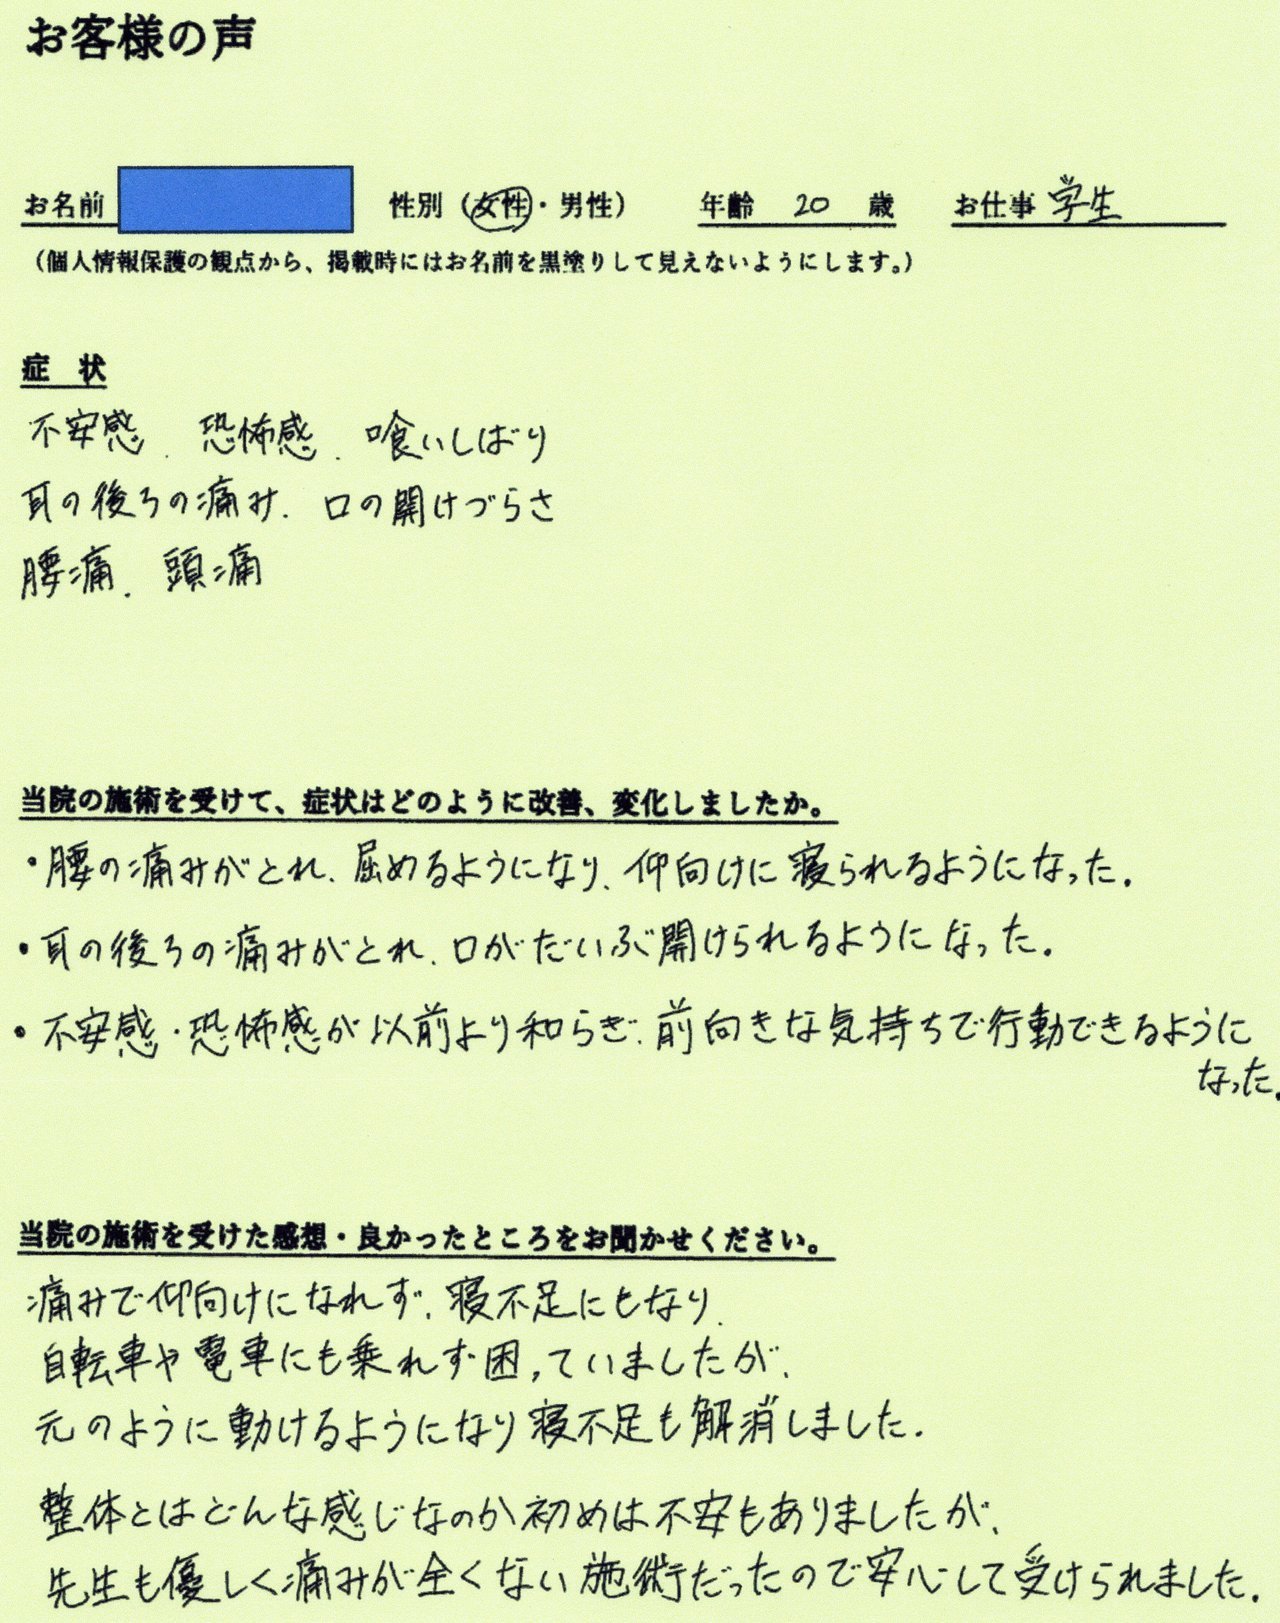 お客様の声
お名前 性別（女性・男性） 年齢 20 歳 お仕事 学生
（個人情報保護の観点から、掲載時にはお名前を黒塗りして見えないようにします。）
症 状
不安感、恐怖感、喰いしばり
耳の後ろの痛み、口の開けづらさ
腰痛、頭痛
当院の施術を受けて、症状はどのように改善、変化しましたか。
・腰の痛みがとれ、屈めるようになり、仰向けに寝られるようになった。
・耳の後ろの痛みがとれ、口がだいぶ開けられるようになった。
・不安感・恐怖感が以前より和らぎ、前向きな気持ちで行動できるように
なった。
当院の施術を受けた感想・良かったところをお聞かせください。
痛みで仰向けになれず、寝不足にもなり、
自転車や電車にも乗れず困っていましたが、
元のように動けるようになり寝不足も解消しました。
整体とはどんな感じなのか初めは不安もありましたが、
先生も優しく痛みが全くない施術だったので安心して受けられました。